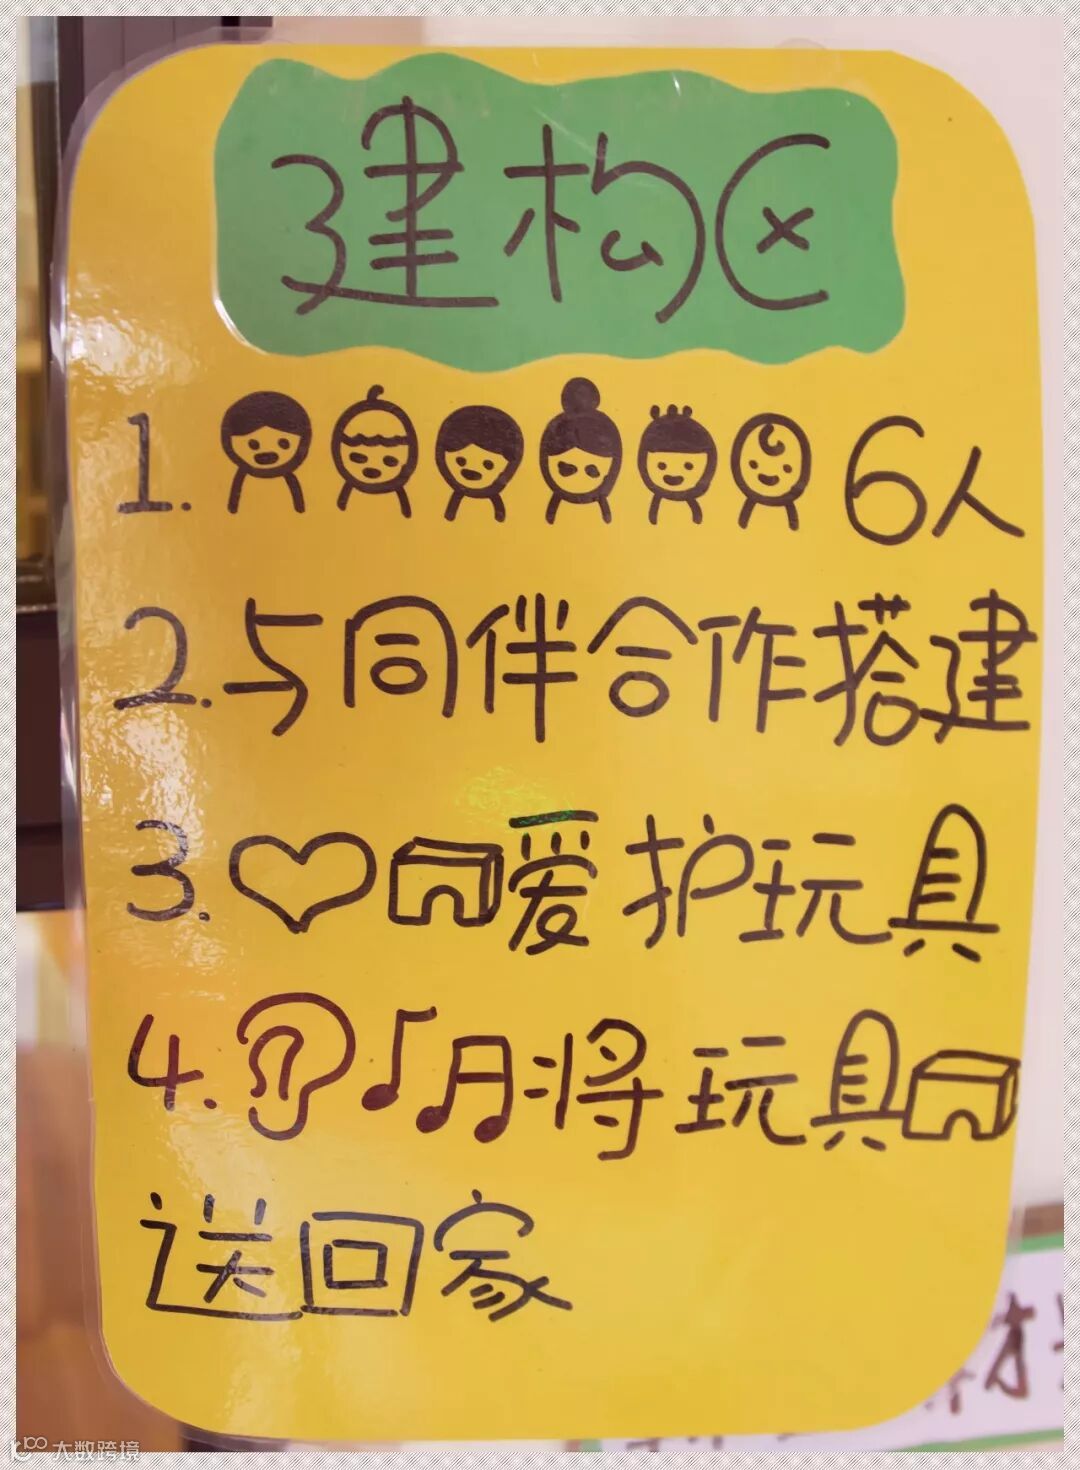 建构区
1. 6人
2.与同伴合作搭建
3. 爱护玩具
4. 将玩具
送回家
大数跨境